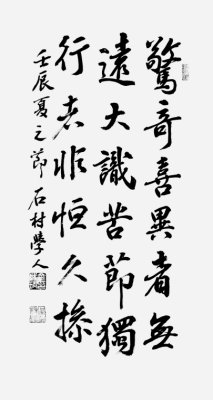 驚奇喜異者無
遠大識苦節獨
行者非恒久操
壬辰夏之節石村學人